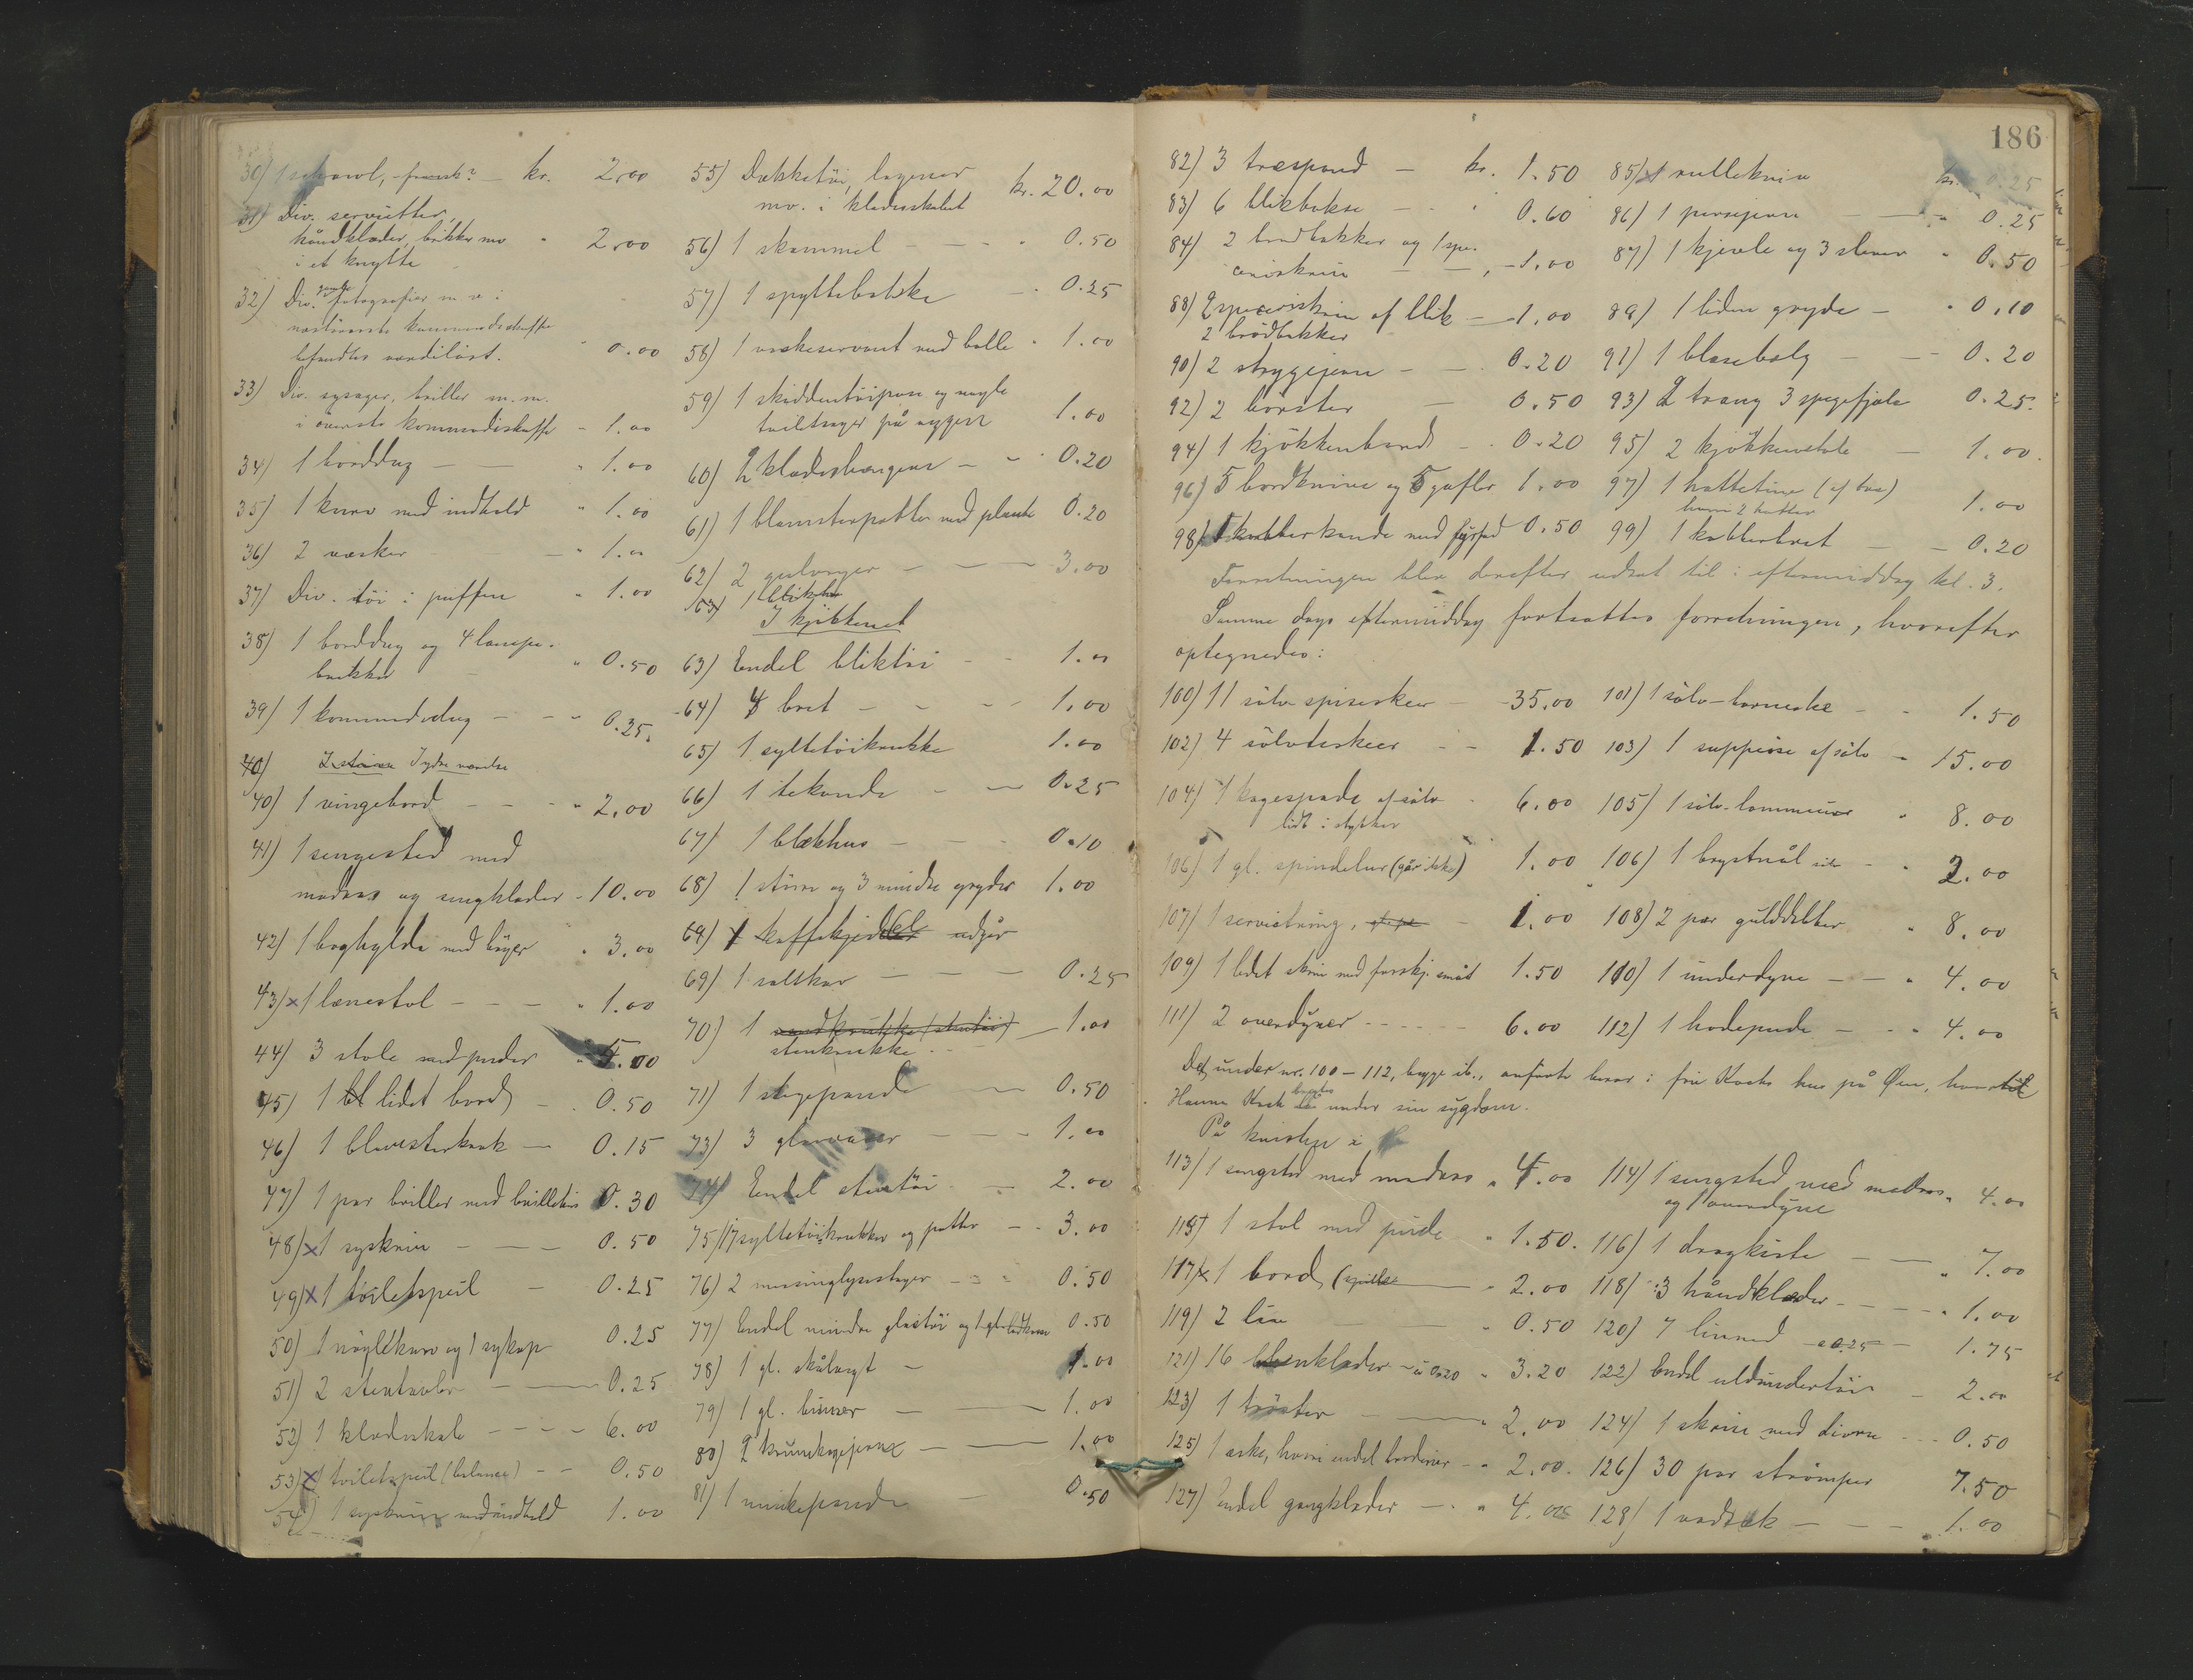 30) 1 schavl, fransk? - kr. 2.00
31) Div. servietter,
håndklæder, bökker mv " 2.00
i et knytte
32) Div. gamle fotografier m. v. i
næstöverste kommodeskuffe
befandtes værdilöst. " 0.00
33) Div. sysager, briller m. m.
i överste kommodeskuffe - 1.00
34) 1 borddug - " 1.00
35) 1 kurv med indhold " 1.00
36) 2 væsker - " 1.00
37) Div. töi i puffen " 1.00
38) 1 borddug og 4 lampe-
brikker " 0.50
39) 1 kommodedug - - - 0.25.
40) I stuen I ydre værelse
40) 1 vingebord - - - " 2.00
41) 1 sengested med
madras og sengklæder - 10.00
42) 1 boghylde med böger " 3.00
43) x 1 lænestol - - - " 1.00
44) 3 stole med puder " 5.00
45) 1 bl lidet bord - . 0.50
46) 1 blomsterkrak - 0.15
47) 1 par briller med brillehus 0.30
48) x 1 syskrin - - - 0.50
49) x 1 toiletspeil - 0.25
50) 1 nöglekurv og 1 sykop 0.25
51) 2 stentavler - 0.25
52) 1 klædeskab - - - - 6.00
53) x 1 toiletspeil (balance) - - 0.50
54) 1 syskrin med indhold 1.00
55) Dækketöi, lagener
mv. i klædeskabet kr. 20.00
56) 1 skammel - - - " 0.50
57) 1 spyttebakke - . 0.25
58) 1 vaskeservant med bolle " 1.00
59) 1 skiddentöipose og nogle
toiletsager på veggen 1.00
60) 2 klædeshængere - - " 0.20
61) 1 blomsterpotte med plante 0.20
62) 2 gulvager - - - 3.00
63) 1 blik
I kjökkenet
63) Endel bliktöi - - 1.00
64) 4 bret - - - - 1.00
65) 1 syltetöikrukke 1.00
66) 1 tekande - - 0.25
67) 1 blækhus - - - 0.10
68) 1 större og 3 mindre gryder 1.00
69) 1 kaffekjedel udgår
69) 1 saltkar - - - 0.25
70) 1 vandkrukke (stentöi) - 1.00
stenkrukke
71) 1 stegepande - 0.50
73) 3 glasvaser - - - 1.00
74) Endel stentöi - 2.00
75) 17 syltetöikrukker og potter - - 3.00
76) 2 messinglysestager - - - 0.50
77) Endel mindre glastöi og 1 0.50
78) 1 gl. skålvægt - 1.00
79) 1 gl. bismer - 1.00
80) 2 krumkagejerne - 1.00
81) 1 munkepande - 0.50
186
82) 3 træspand - kr. 1.50 85) 1 rullekniv kr. 0.25
83) 6 blikbokse - - " 0.60 86) 1 persejern - 0.25
84) 2 brödbakker og 1 spe-
ceriskrin - -, - 1.00 87) 1 kjævle og 3 slever " 0.50
88) 2 speceriskrin af blik - 1.00 89) 1 liden gryde - " 0.10
2 brödbakker
90) 2 strygejern - - 0.20 91) 1 blæsebælg - - 0.20
92) 2 börster - 0.50 93) 2 traug 3 spegefjæle 0.25.
94) 1 kjökkenbord - . 0.20 95) 2 kjökkenstole - 1.00.
96) 5 bordknive og 5 gafler 1.00 97) 1 hattetine (af træ)
hvori 2 hatter 1.00
98) 1 kobberkande med fyrfad 0.50 99) 1 kobberbret - - 0.20
Forretningen blev derefter udsat til i eftermiddag kl. 3.
Samme dags eftermiddag fortsattes forretningen, hvorefter
optegnedes:
100) 11 sölv spiseskeer - 35.00 101) 1 sölv-barneske - - 1.50
102) 4 sölvteskeer - - 1.50 103) 1 suppeöse af sölv - 15.00
104) 1 kagespade af sölv - 6.00 105) 1 sölv-lommeur " 8.00
lidt i stykker
106) 1 gl. spindelur (går ikke) 1.00 106) 1 brystnål sölv - " 2.00
107) 1 serviettring, - 1.00 108) 2 par gulddobber " 8.00
109) 1 lidet skrin med forskj. småt 1.50 110) 1 underdyne - - " 4.00
111) 2 overdyner - - - - - 6.00 112) 1 hodepude - - " 4.00
Det under nr. 100 - 112, begge ib., anförte beror i fru Kochs hus på Öen, hvortil
Hanna Koch bragtes under sin sygdom.
På kvisten i
113) 1 sengsted med madras " 4.00 114) 1 sengsted med madras " 4.00
og 1 overdyne
115) 1 stol med pude " 1.50. 116) 1 dragkiste - - " 7.00
117) x 1 bord (spille - " 2.00 118) 3 håndklæder - - - " 1.00
119) 2 lin - " 0.50 120) 7 linned - a 0.25 - 1.75
121) 16 benklæder - a 0.20 " 3.20 122) Endel uldundertöi - 2.00
123) 1 tröster - 2.00 124) 1 skrin med diverse - - - 0.50
125) 1 æske, hvori endel broderier - " 2.00. 126) 30 par strömper 7.50
127) Endel gangklæder - . " 4.00 128) 1 vadsæk - - - 1.00